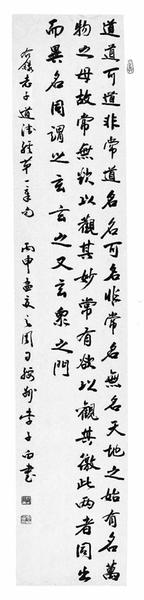 道道可道非常道名名可名非常名無名天地之始有名萬
物之母故常無欲以觀其妙常有欲以觀其徼此兩者同出
而異名同謂之玄玄之又玄衆之門
老子道德經第一章 丙申孟夏之 李子 書